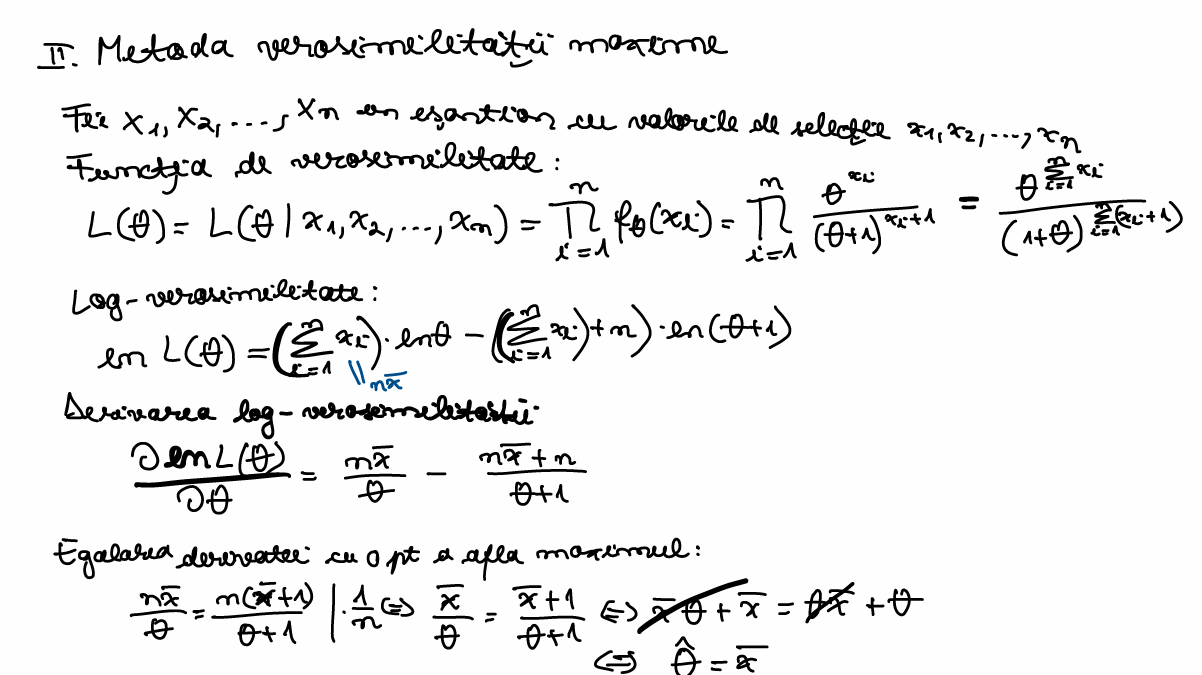 II. Metoda verosimilității maxime
Fie X₁, X₂, ..., Xₙ un eșantion cu valorile de selecție x₁, x₂, ..., xₙ
Funcția de verosimilitate:
L(θ) = L(θ | x₁, x₂, ..., xₙ) = ∏_{i=1}^{n} f_θ(xᵢ) = ∏_{i=1}^{n} θ^{xᵢ} / (θ+1)^{xᵢ+1} = θ^{∑_{i=1}^{n} xᵢ} / (1+θ)^{∑_{i=1}^{n} (xᵢ+1)}
Log-verosimilitate:
ln L(θ) = (∑_{i=1}^{n} xᵢ) · ln θ − ((∑_{i=1}^{n} xᵢ) + n) · ln(θ+1)
|| n x̄
Derivarea log-verosimilității:
∂ ln L(θ) / ∂θ = n x̄ / θ − (n x̄ + n) / (θ+1)
Egalarea derivatei cu 0 pt a afla maximul:
n x̄ / θ = n(x̄+1) / (θ+1) | · 1/n ⇔ x̄ / θ = (x̄+1) / (θ+1) ⇔ x̄ θ + x̄ = θ x̄ + θ
⇔ θ̂ = x̄